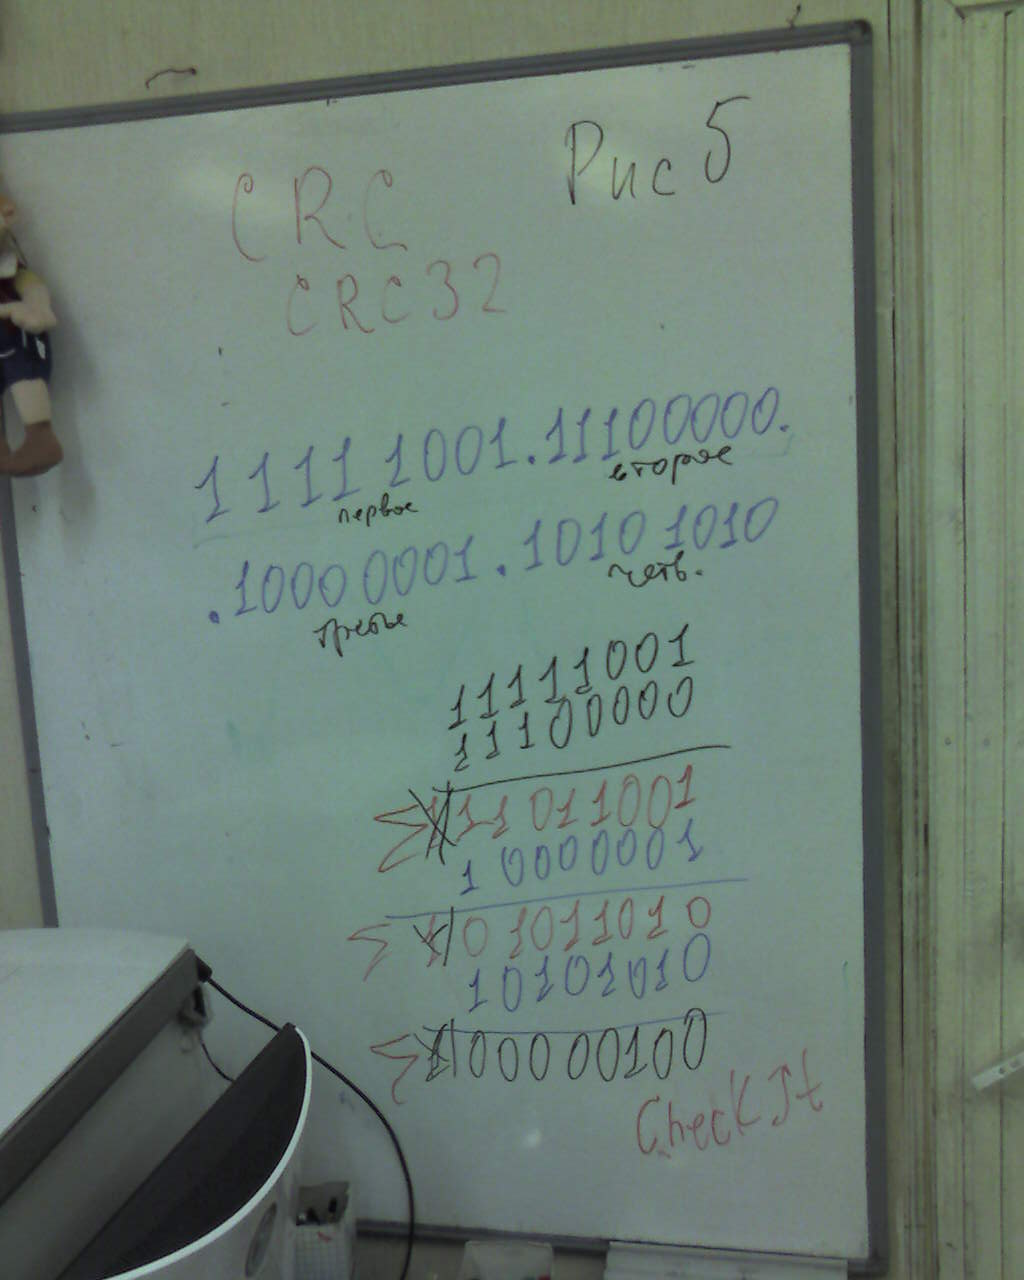 Рис 5
CRC
CRC32
1111 1001.11100000.
первое второе
.1000 0001.1010 1010
третье четв.
11111001
11100000
Σ 1|11011001
10000001
Σ 1|01011010
10101010
Σ 1|00000100
Check It